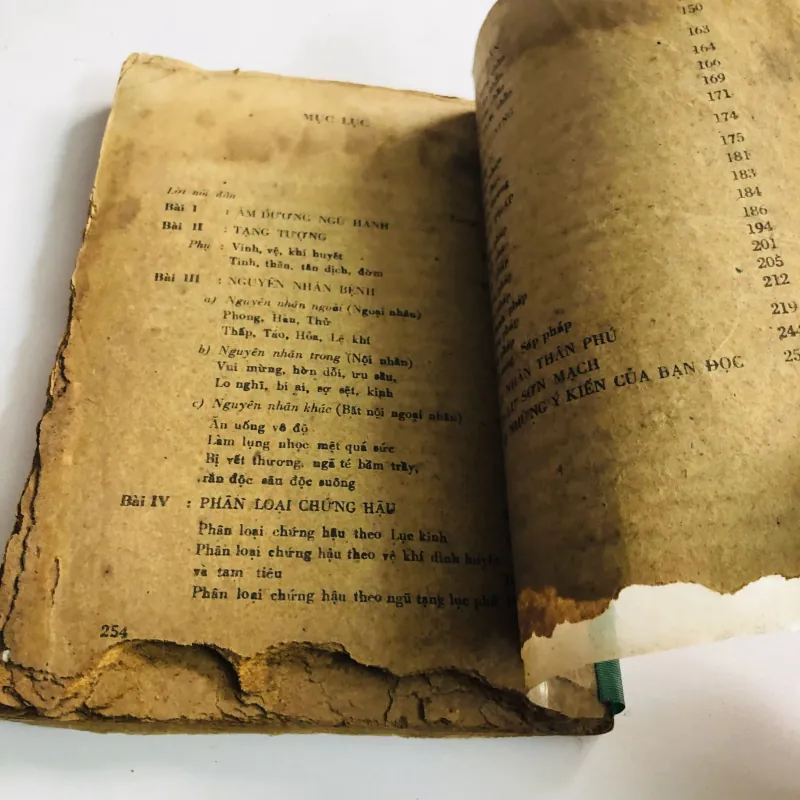 MỤC LỤC
Lời nói đầu
Bài I : ÂM DƯƠNG NGŨ HÀNH
Bài II : TẠNG TƯỢNG
Phụ : Vinh, vệ, khí huyết
Tinh, thần, tân dịch, đờm
Bài III : NGUYÊN NHÂN BỆNH
a) Nguyên nhân ngoài (Ngoại nhân)
Phong, Hàn, Thử
Thấp, Táo, Hỏa, Lệ khí
b) Nguyên nhân trong (Nội nhân)
Vui mừng, hờn dỗi, ưu sầu,
Lo nghĩ, bi ai, sợ sệt, kinh
c) Nguyên nhân khác (Bất nội ngoại nhân)
Ăn uống vô độ
Làm lụng nhọc mệt quá sức
Bị vết thương, ngã té bầm trầy,
rắn độc sân độc suông
Bài IV : PHÂN LOẠI CHỨNG HẬU
Phân loại chứng hậu theo Lục kinh
Phân loại chứng hậu theo vệ khí dinh huyết
và tam tiêu
Phân loại chứng hậu theo ngũ tạng lục phủ
254
150
163
164
166
169
171
174
175
181
183
184
186
194
201
205
212
pháp
pháp 219
NHÂN THÂN PHÚ
SƠN MẠCH
NHỮNG Ý KIẾN CỦA BẠN ĐỌC